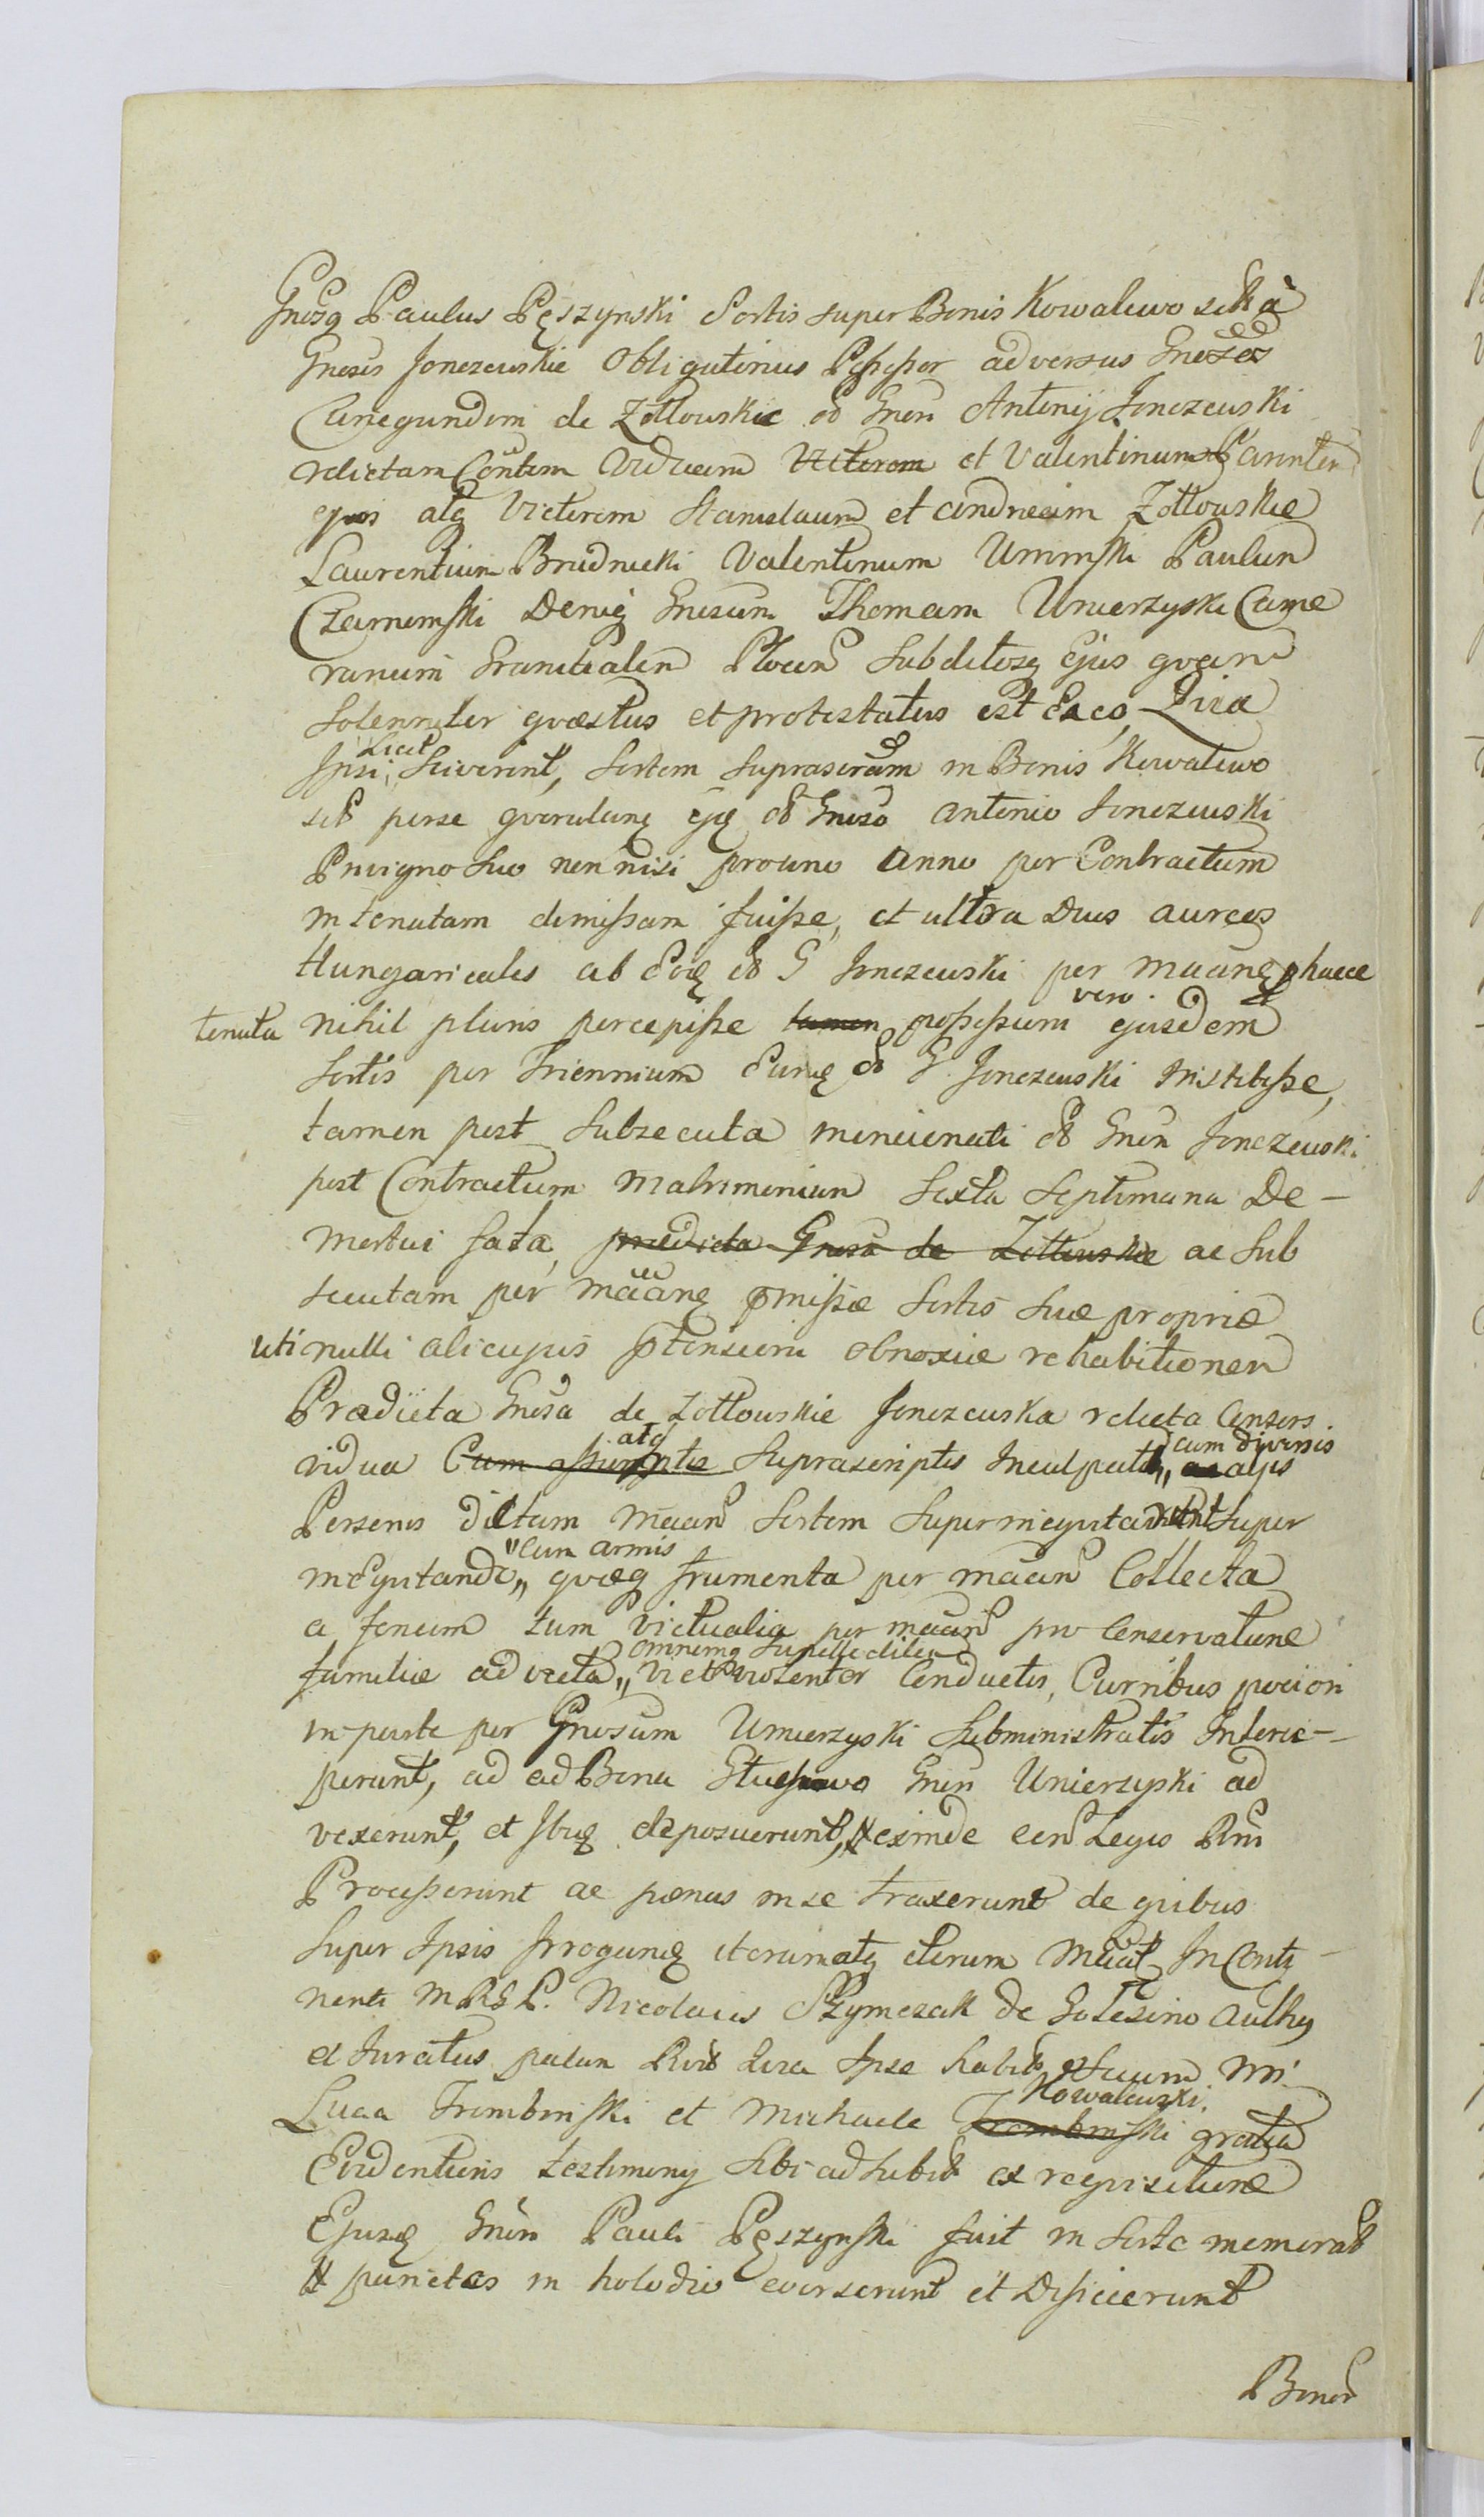 Gnosq Paulus Pęszynski Sortis super Bonis Kowalewo sitæ a
Gnosis Jonczewskie Obligatorius Possessor adversus Gnosos
Cunegundem de Zołtowskie od Gnsi Antonij Jonczewski
relictam Contem Viduam Victorem et Valentinum Parentem
ejus atq Victorem Stanislaum et Andream Zołtowskie
Laurentium Brudnicki Valentinum Uminski Paulum
Czarnomski Deniq Gnosum Thomam Umierzyski Came
rarium Granicialem Plocen Subditosq Ejus quam
Solenniter quæstus et protestatus est Ex eo, Quia
Ipsi Licet Sciverint, Sortem Suprascram in Bonis Kowalewo
sit per se querulunq ejq od Gnoso Antonio Jonczewski
Privigno Suo non nisi pro uno Anno per Contractum
in tenutam dimissam fuisse, et ultra Duos aureos
Hungaricales ab Eodq od G Jonczewski per maanq p haece
tenuta nihil pluris percepisse tamen vero possessum ejusdem
Sortis per Triennium Eunq od G. Jonczewski Institisse,
tamen post Subsecuta mencionati od Gnsi Jonczewski
post Contractum Matrimonium Sexta Septimana De-
mortui fata, prædicta Gnosa de Zoltowskie ac Sub
secutam per maanq pmissæ Sortis Suæ propriæ
uti nulli alicujus ptensioni obnoxiæ rehabitionem
Prædicta Gnosa de Zołtowskie Jonczewska relicta Consors
vidua Cum assumptis atq Suprascriptis Inculpatis,, cum diversis ac alijs
Personis dictam maan Sortem Superinequitarunt Super
inequitando,, cum armis quæq frumenta per maan Collecta
a fenum tum victualia per maan pro Conservatione
familiæ advecta,, omnemq Supellectilem vi et violenter Conductis, Curribus pociori
in parte per Gnosum Umierzyski Subministratis Interce-
perunt, ad ad Bona Gnsi Unierzyski ad
vexerunt, et Ibiq deposuerunt, exinde Legis Rni
Processerunt ac pænas in se traxerunt de quibus
Super Ipsis Irrogandq iterumatq iterum Maat In Conti-
nenti M RGP. Nicolaus Szymczak de Golesino authus
et Juratus palam Rvit Quia Ipse habit Suum Mri
Luca Trembinski et Michaele Trembinski Kowalewski gratia
Evidentioris testimonij Sibi adhibit ex requisitione
Ejusq Gnsi Pauli Pęszynski fuit in Sorte memorat
parietes in holodio everserunt et Disiecerunt
Bonor